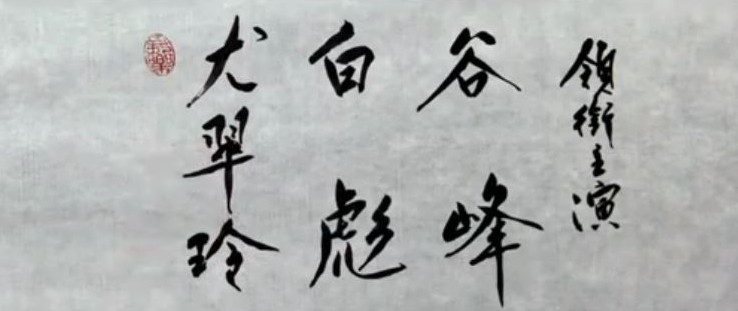 領銜主演
谷峰
白彪
尤翠玲